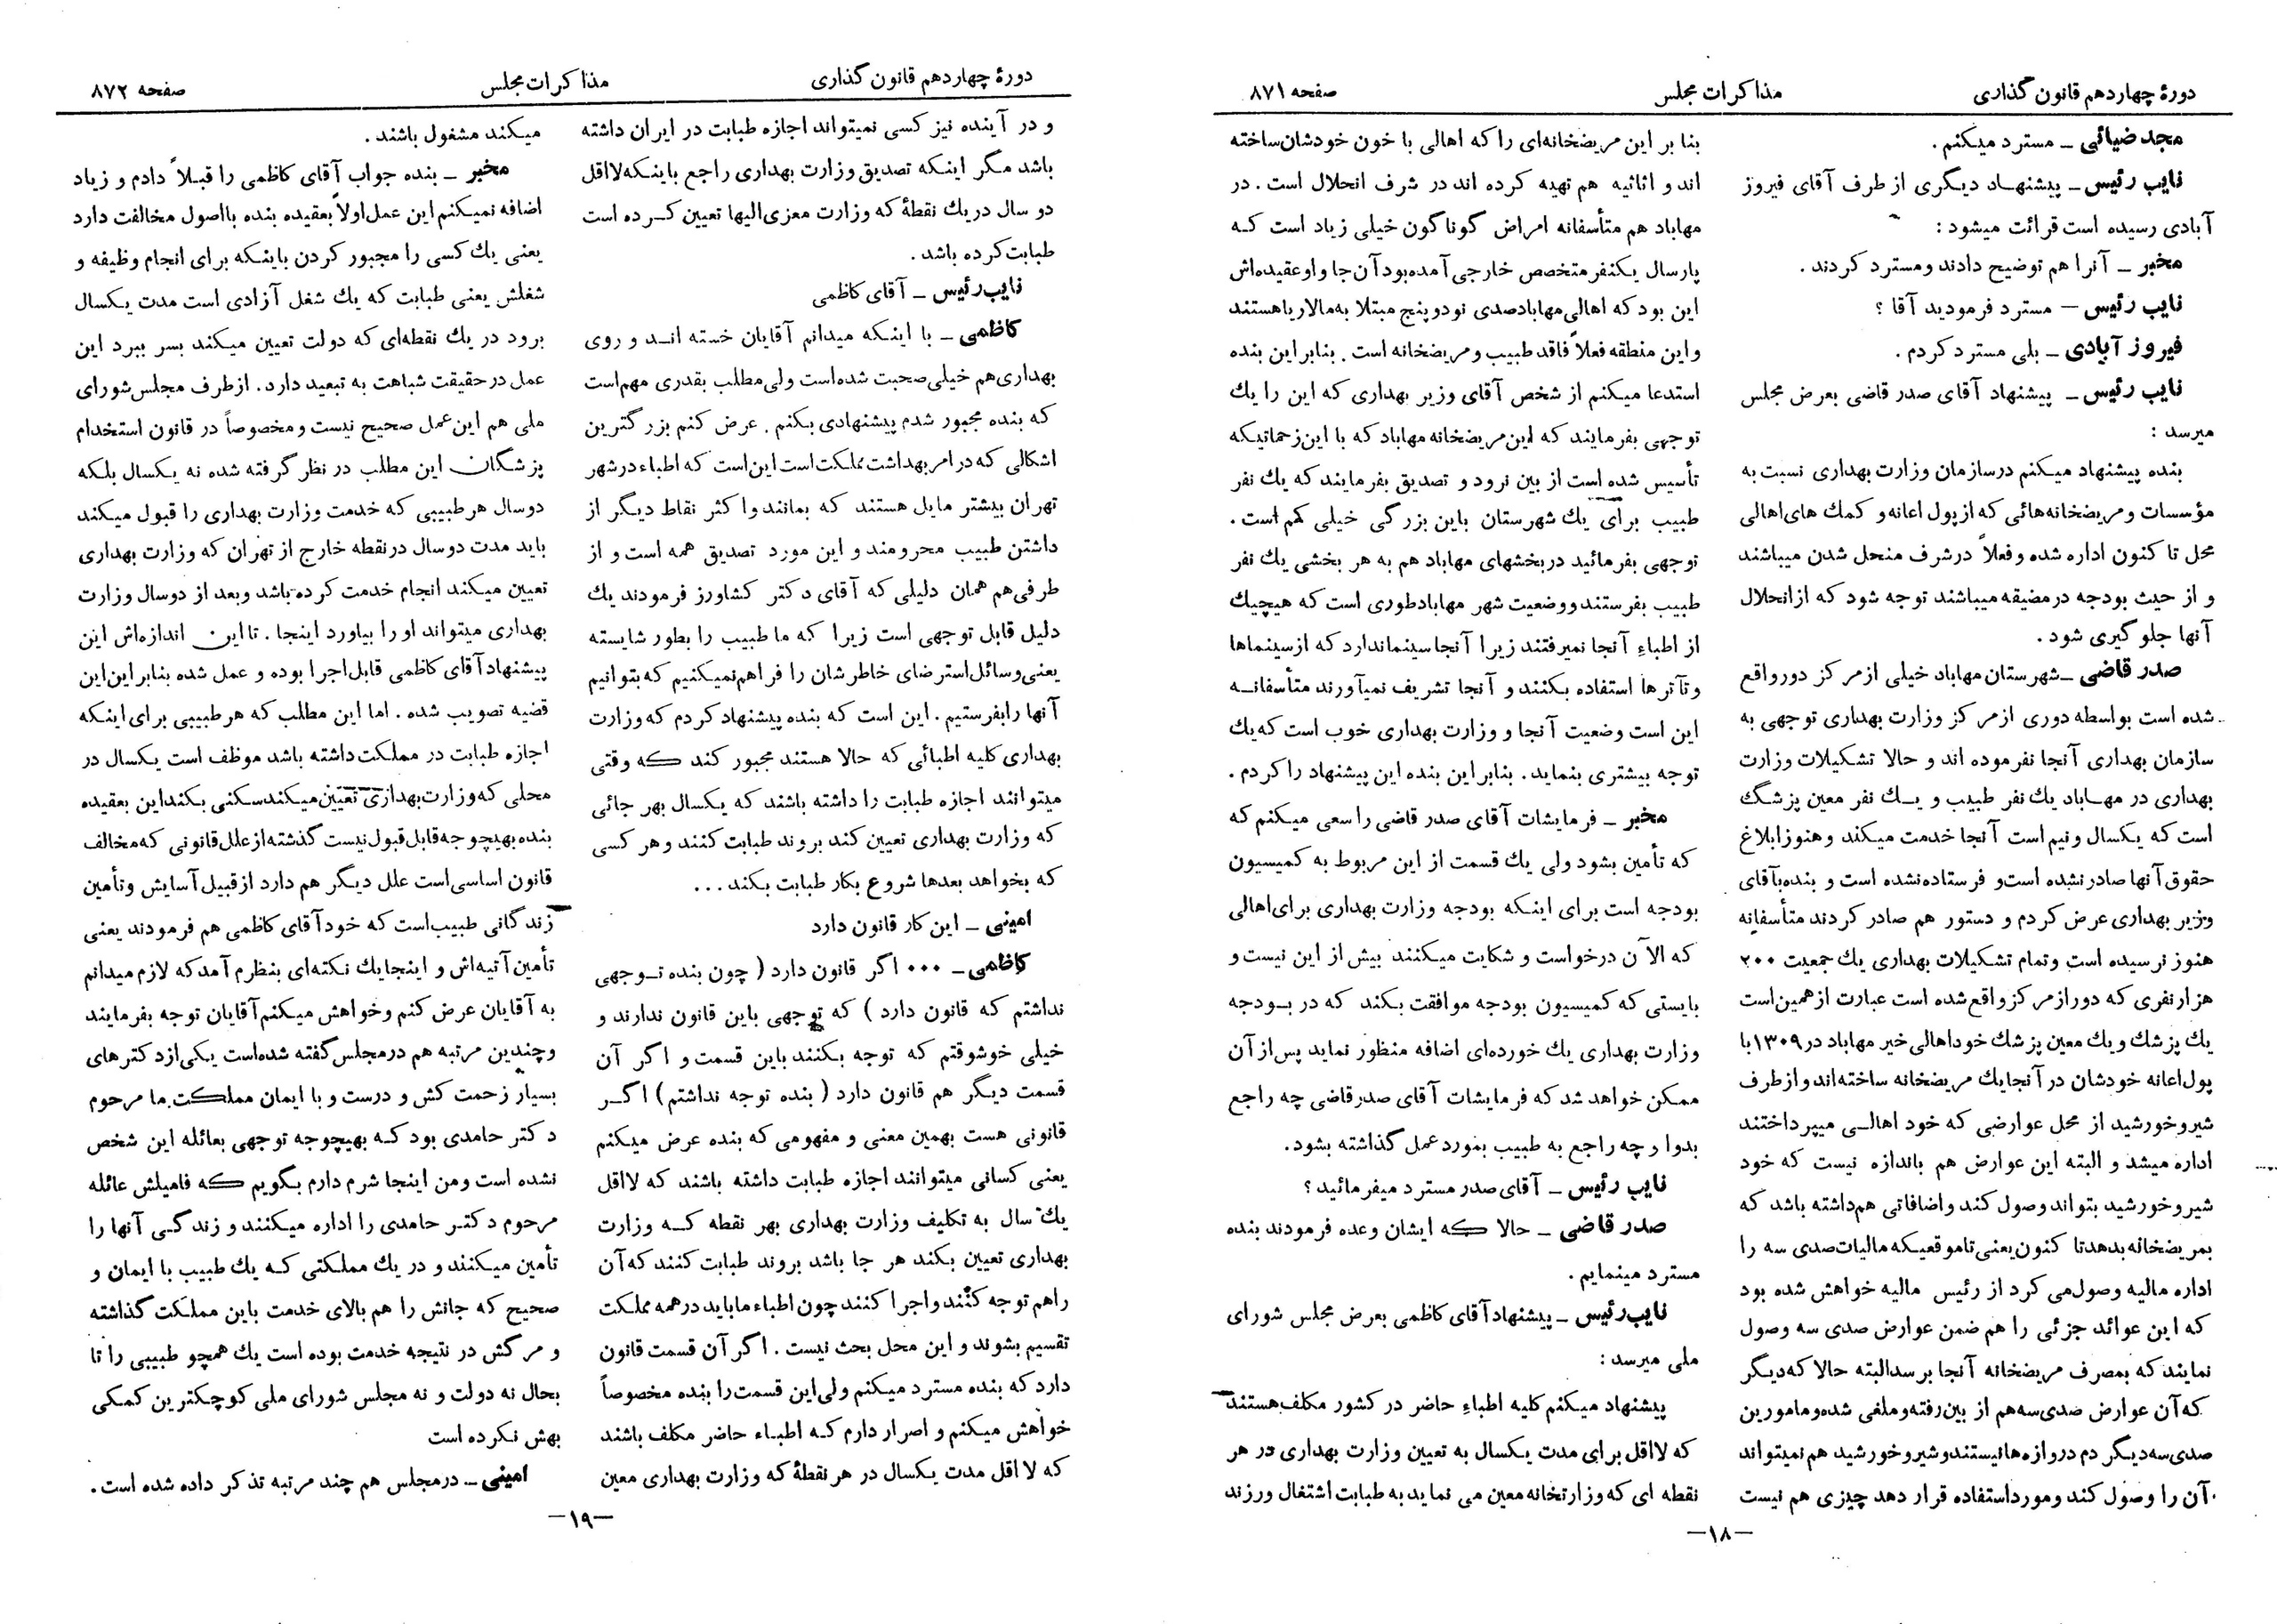 دورهٔ چهاردهم قانون گذاری
مذاکرات مجلس
صفحه ۸۷۱
مجد ضیائی ـ مسترد میکنم .
نایب رئیس ـ پیشنهاد دیگری از طرف آقای فیروز
آبادی رسیده است قرائت میشود :
مخبر ـ آنرا هم توضیح دادند و مسترد کردند .
نایب رئیس — مسترد فرمودید آقا ؟
فیروز آبادی ـ بلی مسترد کردم .
نایب رئیس ـ پیشنهاد آقای صدر قاضی بعرض مجلس
میرسد :
بنده پیشنهاد میکنم درسازمان وزارت بهداری نسبت به
مؤسسات و مریضخانه‌هائی که از پول اعانه و کمك های اهالی
محل تا کنون اداره شده و فعلاً درشرف منحل شدن میباشند
و از حیث بودجه در مضیقه میباشند توجه شود که از انحلال
آنها جلو گیری شود .
صدر قاضی ـ شهرستان مهاباد خیلی از مرکز دور واقع
شده است بواسطه دوری از مرکز وزارت بهداری توجهی به
سازمان بهداری آنجا نفرموده اند و حالا تشکیلات وزارت
بهداری در مهاباد یك نفر طبیب و یك نفر معین پزشگ
است که یکسال و نیم است آنجا خدمت میکند و هنوز ابلاغ
حقوق آنها صادر نشده است و فرستاده نشده است و بنده بآقای
وزیر بهداری عرض کردم و دستور هم صادر کردند متأسفانه
هنوز نرسیده است و تمام تشکیلات بهداری یك جمعیت ۲۰۰
هزار نفری که دور از مرکز واقع شده است عبارت از همین است
یك پزشك و یك معین پزشك خود اهالی خیر مهاباد در ۱۳۰۹ با
پول اعانه خودشان در آنجا یك مریضخانه ساخته‌اند و از طرف
شیر و خورشید از محل عوارضی که خود اهالی میپرداختند
اداره میشد و البته این عوارض هم باندازه نیست که خود
شیر و خورشید بتواند وصول کند و اضافاتی هم داشته باشد که
بمریضخانه بدهد تا کنون یعنی تا موقعیکه مالیات صدی سه را
اداره مالیه وصول می کرد از رئیس مالیه خواهش شده بود
که این عوائد جزئی را هم ضمن عوارض صدی سه وصول
نمایند که بمصرف مریضخانه آنجا برسد البته حالا که دیگر
که آن عوارض صدی سه هم از بین رفته و ملغی شده و مامورین
صدی سه دیگر دم دروازه ها نیستند و شیر و خورشید هم نمیتواند
آن را وصول کند و مورد استفاده قرار دهد چیزی هم نیست
بنا بر این مریضخانه‌ای را که اهالی با خون خودشان ساخته
اند و اثاثیه هم تهیه کرده اند در شرف انحلال است . در
مهاباد هم متأسفانه امراض گوناگون خیلی زیاد است که
پارسال یکنفر متخصص خارجی آمده بود آن جا و او عقیده‌اش
این بود که اهالی مهاباد صدی نود و پنج مبتلا به مالاریا هستند
و این منطقه فعلاً فاقد طبیب و مریضخانه است . بنابر این بنده
استدعا میکنم از شخص آقای وزیر بهداری که این را یك
توجهی بفرمایند که این مریضخانه مهاباد که با این زحماتیکه
تأسیس شده است از بین نرود و تصدیق بفرمایند که یك نفر
طبیب برای یك شهرستان باین بزرگی خیلی کم است .
توجهی بفرمائید در بخشهای مهاباد هم به هر بخشی یك نفر
طبیب بفرستند و وضعیت شهر مهاباد طوری است که هیچیك
از اطباء آنجا نمیرفتند زیرا آنجا سینما ندارد که از سینماها
و تآترها استفاده بکنند و آنجا تشریف نمیآورند متأسفانه
این است وضعیت آنجا و وزارت بهداری خوب است که یك
توجه بیشتری بنماید . بنابر این بنده این پیشنهاد را کردم .
مخبر ـ فرمایشات آقای صدر قاضی را سعی میکنم که
که تأمین بشود ولی یك قسمت از این مربوط به کمیسیون
بودجه است برای اینکه بودجه وزارت بهداری برای اهالی
که الآن درخواست و شکایت میکنند بیش از این نیست و
بایستی که کمیسیون بودجه موافقت بکند که در بودجه
وزارت بهداری یك خورده‌ای اضافه منظور نماید پس از آن
ممکن خواهد شد که فرمایشات آقای صدر قاضی چه راجع
بدوا و چه راجع به طبیب بمورد عمل گذاشته بشود .
نایب رئیس ـ آقای صدر مسترد میفرمائید ؟
صدر قاضی ـ حالا که ایشان وعده فرمودند بنده
مسترد مینمایم .
نایب رئیس ـ پیشنهاد آقای کاظمی بعرض مجلس شورای
ملی میرسد :
پیشنهاد میکنم کلیه اطباء حاضر در کشور مکلف هستند
که لااقل برای مدت یکسال به تعیین وزارت بهداری در هر
نقطه ای که وزارتخانه معین می نماید به طبابت اشتغال ورزند
—۱۸—
دورهٔ چهاردهم قانون گذاری
مذاکرات مجلس
صفحه ۸۷۲
و در آینده نیز کسی نمیتواند اجازه طبابت در ایران داشته
باشد مگر اینکه تصدیق وزارت بهداری راجع باینکه لااقل
دو سال در یك نقطهٔ که وزارت معزی الیها تعیین کرده است
طبابت کرده باشد .
نایب رئیس ـ آقای کاظمی
کاظمی ـ با اینکه میدانم آقایان خسته اند و روی
بهداری هم خیلی صحبت شده است ولی مطلب بقدری مهم است
که بنده مجبور شدم پیشنهادی بکنم . عرض کنم بزرگترین
اشکالی که در امر بهداشت مملکت است این است که اطباء در شهر
تهران بیشتر مایل هستند که بمانند و اکثر نقاط دیگر از
داشتن طبیب محرومند و این مورد تصدیق همه است و از
طرفی هم همان دلیلی که آقای دکتر کشاورز فرمودند یك
دلیل قابل توجهی است زیرا که ما طبیب را بطور شایسته
یعنی وسائل استرضای خاطرشان را فراهم نمیکنیم که بتوانیم
آنها را بفرستیم . این است که بنده پیشنهاد کردم که وزارت
بهداری کلیه اطبائی که حالا هستند مجبور کند که وقتی
میتوانند اجازه طبابت را داشته باشند که یکسال بهر جائی
که وزارت بهداری تعیین کند بروند طبابت کنند و هر کسی
که بخواهد بعدها شروع بکار طبابت بکند ...
امینی ـ این کار قانون دارد
کاظمی ـ ... اگر قانون دارد ( چون بنده توجهی
نداشتم که قانون دارد ) که توجهی باین قانون ندارند و
خیلی خوشوقتم که توجه بکنند باین قسمت و اگر آن
قسمت دیگر هم قانون دارد ( بنده توجه نداشتم ) اگر
قانونی هست بهمین معنی و مفهومی که بنده عرض میکنم
یعنی کسانی میتوانند اجازه طبابت داشته باشند که لااقل
یك سال به تکلیف وزارت بهداری بهر نقطه که وزارت
بهداری تعیین بکند هر جا باشد بروند طبابت کنند که آن
را هم توجه کنند و اجرا کنند چون اطباء ما باید در همه مملکت
تقسیم بشوند و این محل بحث نیست . اگر آن قسمت قانون
دارد که بنده مسترد میکنم ولی این قسمت را بنده مخصوصاً
خواهش میکنم و اصرار دارم که اطباء حاضر مکلف باشند
که لااقل مدت یکسال در هر نقطهٔ که وزارت بهداری معین
میکند مشغول باشند .
مخبر ـ بنده جواب آقای کاظمی را قبلاً دادم و زیاد
اضافه نمیکنم این عمل اولاً بعقیده بنده با اصول مخالفت دارد
یعنی یك کسی را مجبور کردن باینکه برای انجام وظیفه و
شغلش یعنی طبابت که یك شغل آزادی است مدت یکسال
برود در یك نقطه‌ای که دولت تعیین میکند بسر ببرد این
عمل در حقیقت شباهت به تبعید دارد . از طرف مجلس شورای
ملی هم این عمل صحیح نیست و مخصوصاً در قانون استخدام
پزشگان این مطلب در نظر گرفته شده نه یکسال بلکه
دو سال هر طبیبی که خدمت وزارت بهداری را قبول میکند
باید مدت دو سال در نقطه خارج از تهران که وزارت بهداری
تعیین میکند انجام خدمت کرده باشد و بعد از دو سال وزارت
بهداری میتواند او را بیاورد اینجا . تا این اندازه‌اش این
پیشنهاد آقای کاظمی قابل اجرا بوده و عمل شده بنابر این این
قضیه تصویب شده . اما این مطلب که هر طبیبی برای اینکه
اجازه طبابت در مملکت داشته باشد موظف است یکسال در
محلی که وزارت بهداری تعیین میکند سکنی بکند این بعقیده
بنده بهیچوجه قابل قبول نیست گذشته از علل قانونی که مخالف
قانون اساسی است علل دیگر هم دارد از قبیل آسایش و تأمین
زندگانی طبیب است که خود آقای کاظمی هم فرمودند یعنی
تأمین آتیه‌اش و اینجا یك نکته‌ای بنظرم آمد که لازم میدانم
به آقایان عرض کنم و خواهش میکنم آقایان توجه بفرمایند
و چندین مرتبه هم در مجلس گفته شده است یکی از دکترهای
بسیار زحمت کش و درست و با ایمان مملکت ما مرحوم
دکتر حامدی بود که بهیچوجه توجهی بعائله این شخص
نشده است و من اینجا شرم دارم بگویم که فامیلش عائله
مرحوم دکتر حامدی را اداره میکنند و زندگی آنها را
تأمین میکنند و در یك مملکتی که یك طبیب با ایمان و
صحیح که جانش را هم بالای خدمت باین مملکت گذاشته
و مرگش در نتیجه خدمت بوده است یك همچو طبیبی را تا
بحال نه دولت و نه مجلس شورای ملی کوچکترین کمکی
بهش نکرده است
امینی ـ در مجلس هم چند مرتبه تذکر داده شده است .
—۱۹—